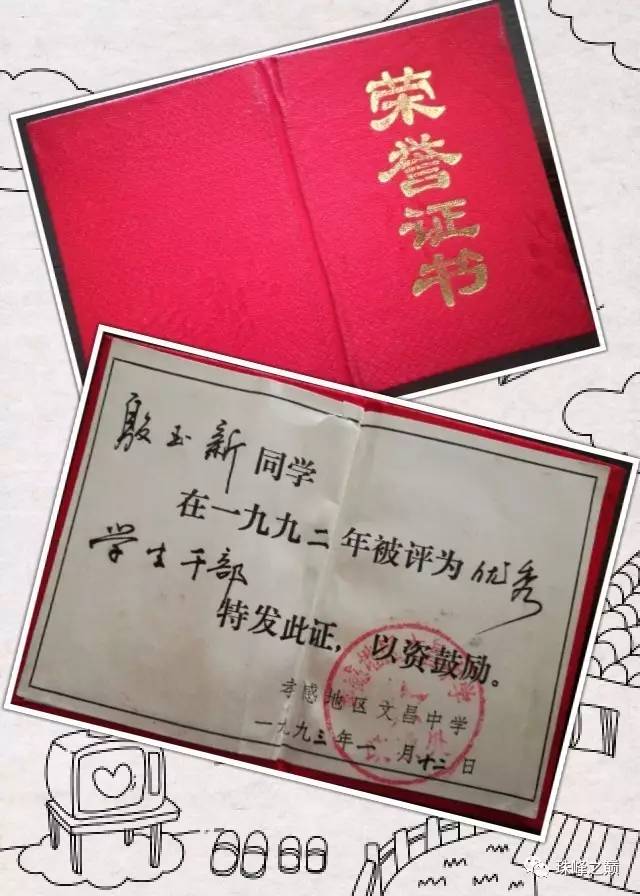 荣誉证书
殷玉新同学
在一九九二年被评为优秀
学生干部
特发此证，以资鼓励。
孝感地区文昌中学
一九九三年一月十二日
珠峰之巅